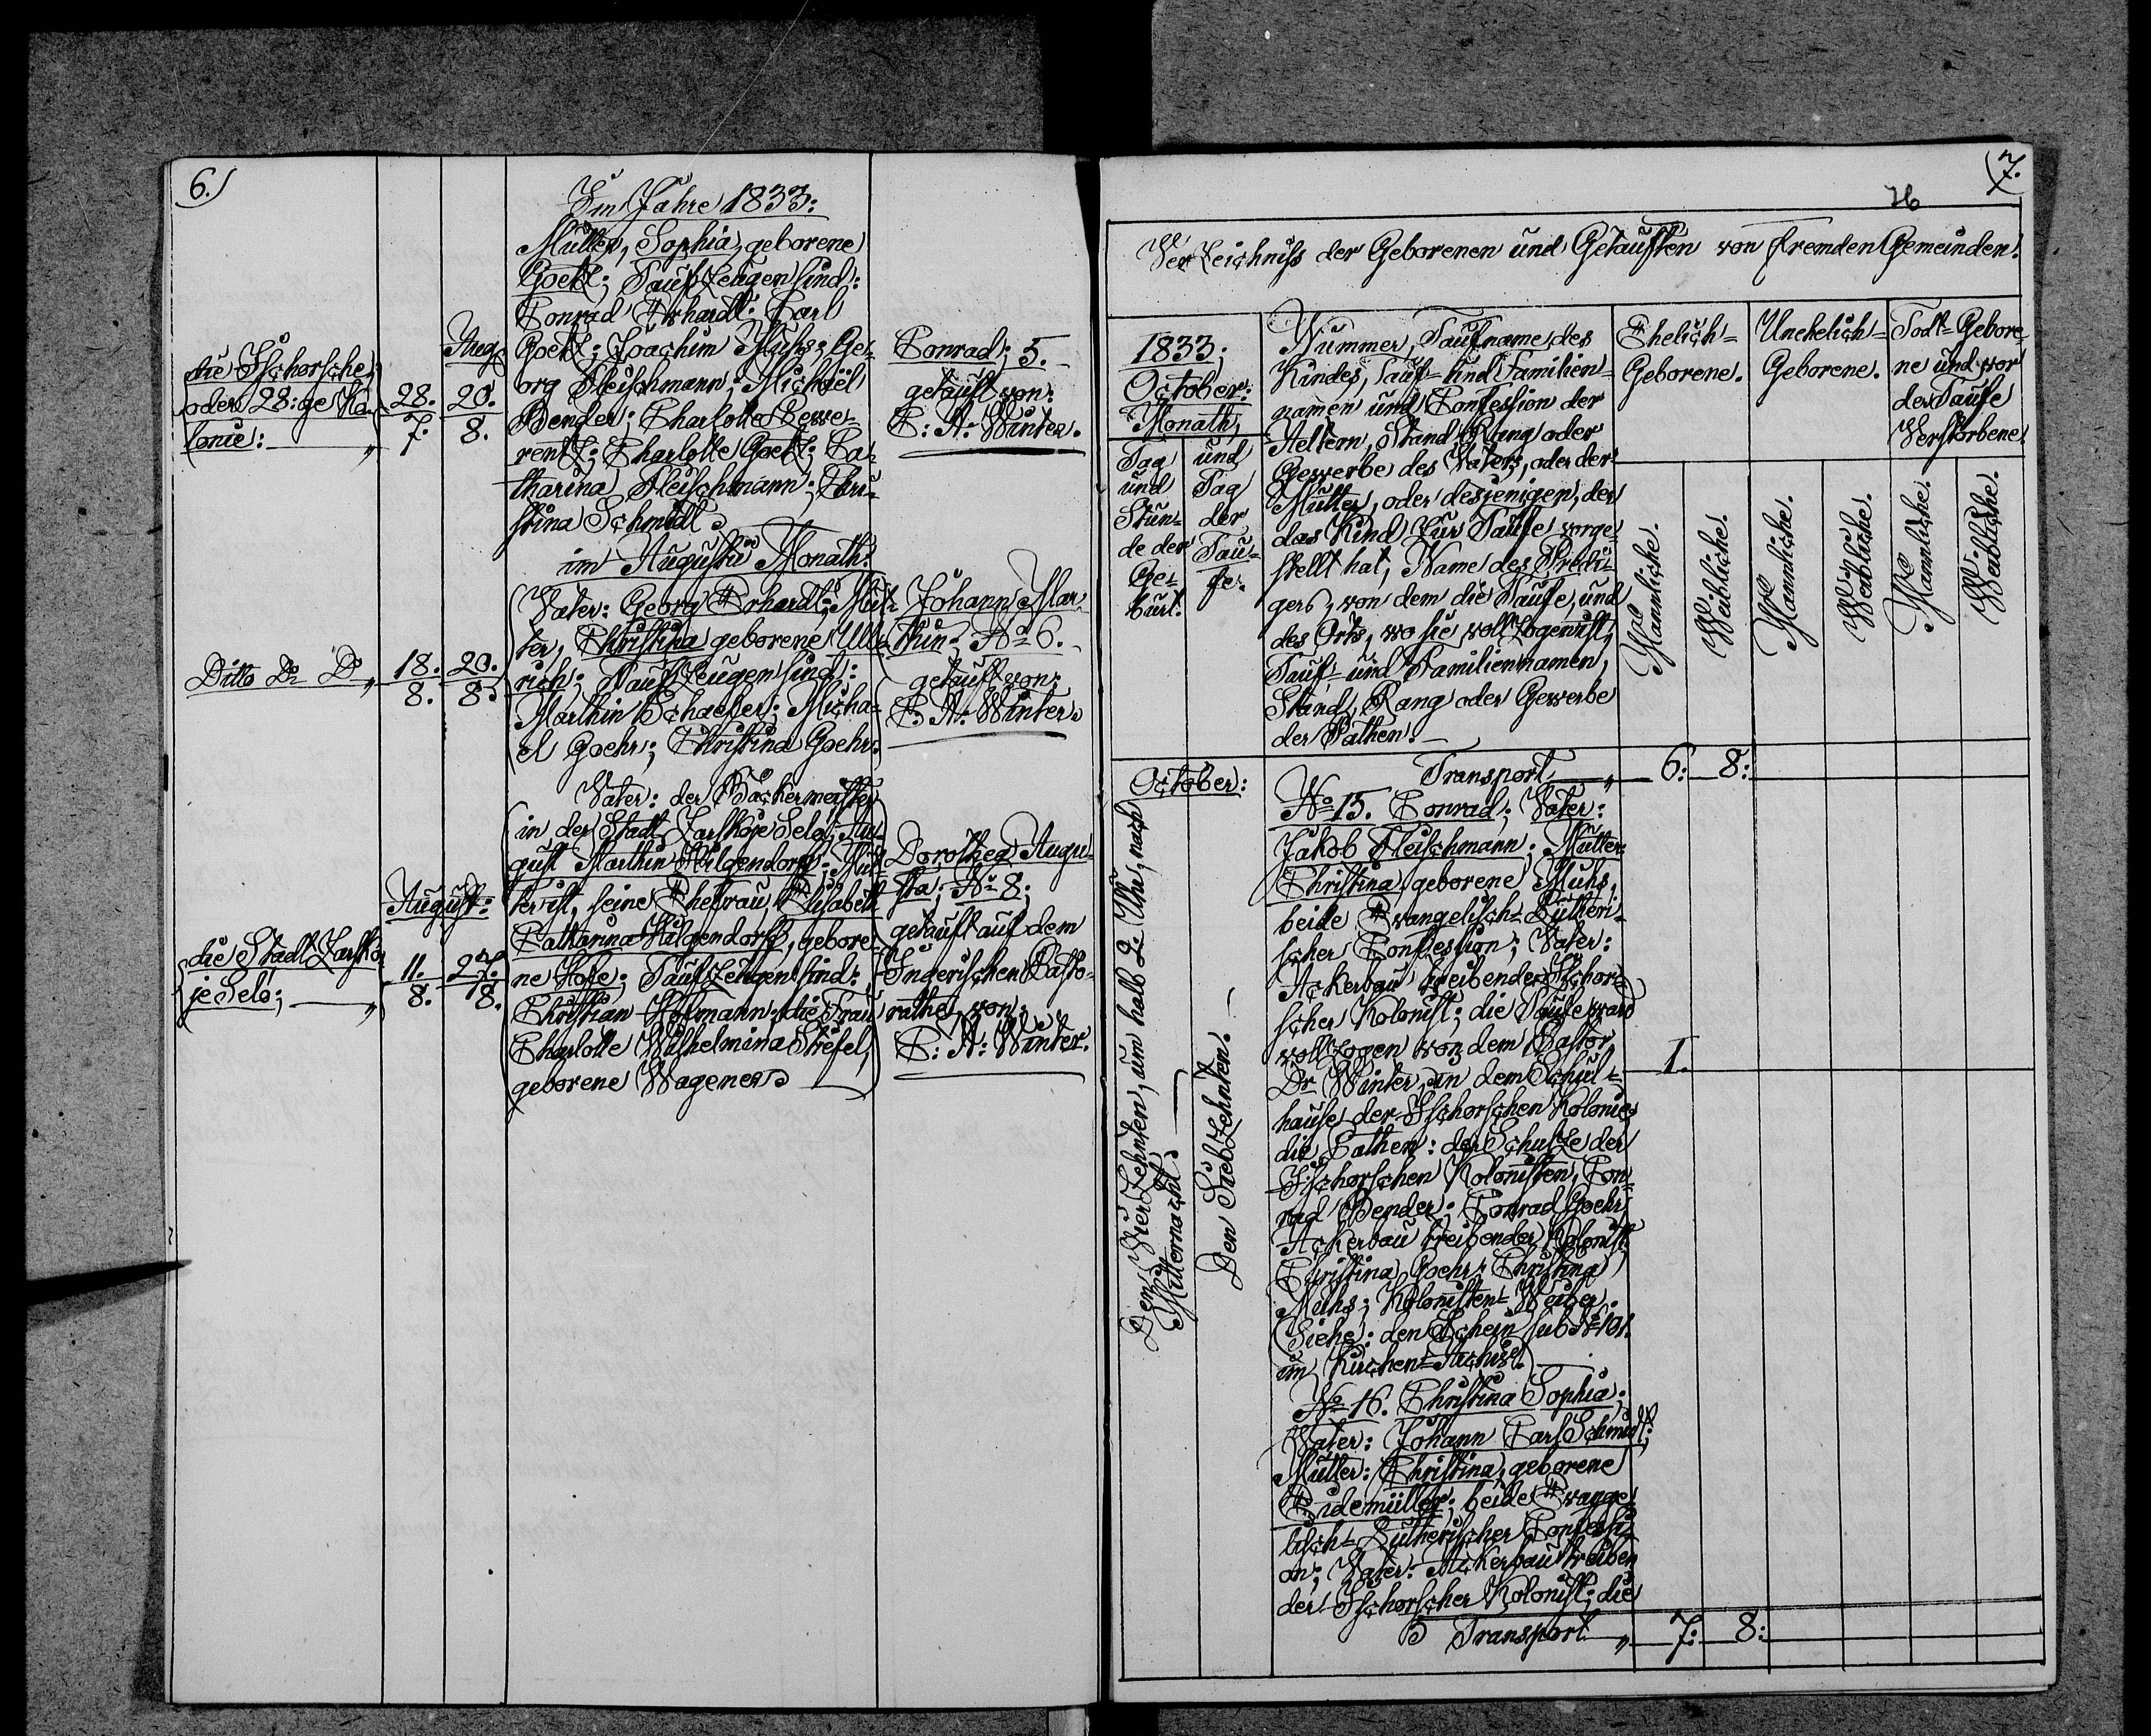 6.)
Im Jahre 1833:
Mutter, Sophia, geborene
Goetz; Taufzeugen sind:
Conrad Erhardt; Carl
Goetz; Joachim Muhs; Ge-
org Fleischmann; Michael
Bender; Charlotte Lewe-
rentz; Charlotte Goetz; Ca-
tharina Fleischmann; Chri-
stina Schmidt.
die Ischorsche,
oder 28:ge Ko-
lonie:
28.
7.
Aug.
20.
8.
Conrad; 5.
getauft von:
C: A: Winter.
im Augusti Monath:
Vater: Georg Erhardt; Mut-
ter, Christina geborene Ull-
rich; Taufzeugen sind:
Marthin Schaefer; Micha-
el Goehr; Christina Goehr.
Ditto Do Do
18.
8.
20.
8.
Johann Mar-
thin; No 6.
getauft von:
C: A: Winter.
Vater: der Bäckermeister
in der Stadt Zarskoje Selo, Au-
gust Marthin Hilgendorff; Mut-
ter ist, seine Ehefrau, Elisabeth
Catharina Hilgendorff, gebore-
ne Hofe; Taufzeugen sind:
Christian Hofmann; die Frau
Charlotte Wilhelmina Stiefel,
geborene Wagener.
die Stadt Zarsko-
je Selo;
August:
11.
8.
27.
8.
Dorothea Augu-
sta; No 8;
getauft auf dem
Ingerischen Pasto-
rathe, von:
C: A: Winter.
7.
Verzeichniss der Geborenen und Getauften von fremden Gemeinden.
1833;
October:
Monath,
Tag
und
Stun-
de der
Ge-
burt.
und
Tag
der
Tau-
fe.
Nummer, Taufname des
Kindes, Tauf- und Familien-
namen und Confession der
Aeltern, Stand, Rang oder
Gewerbe des Vaters, oder der
Mutter, oder desjenigen, der
das Kind zur Taufe vorge-
stellt hat; Name des Predi-
gers, von dem die Taufe, und
des Orts, wo sie vollzogen ist;
Tauf- und Familiennamen,
Stand, Rang oder Gewerbe
der Pathen.
Ehelich-
Geborene.
Unehelich-
Geborene.
Todt-Gebore-
ne und vor
der Taufe
Verstorbene.
Männliche.
Weibliche.
Männliche.
Weibliche.
Männliche.
Weibliche.
Transport 6: 8:
October:
Den Vierzehnten, um halb 2. Uhr, nach
Mitternacht.
Den Siebzehnten.
No 15. Conrad; Vater:
Jakob Fleischmann; Mutter:
Christina, geborene Muhs,
beide Evangelisch-Lutheri-
scher Confession; Vater:
Ackerbau treibender Ischor-
scher Kolonist; die Taufe ward
vollzogen von dem Pastor,
Dr Winter, in dem Schul-
hause der Ischorschen Kolonie;
die Pathen: der Schulze der
Ischorschen Kolonisten, Con-
rad Bender; Conrad Goehr,
Ackerbau treibender Kolonist;
Christina Goehr; Christina
Muhs; Kolonisten-Weiber.
(Siehe: den Schein sub No 101.
im Kirchen-Archive.)
1.
No 16. Christina Sophia;
Vater: Johann Carl Schmidt;
Mutter: Christina, geborene
Eidemüller; beide Evange-
lisch-Lutherischer Confessi-
on; Vater: Ackerbau treiben-
der Ischorscher Kolonist; die
Transport 7: 8: